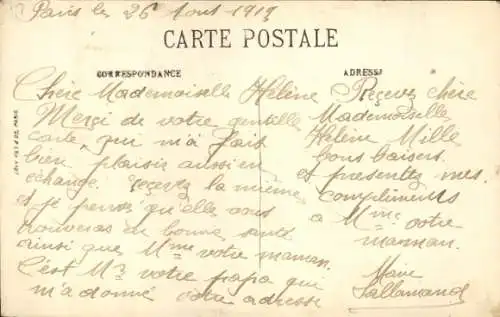 Paris le 26 Aout 1917
CARTE POSTALE
CORRESPONDANCE
ADRESSE
Chère Mademoiselle Hélène
Merci de votre gentille
carte, qui m'a fait
bien plaisir aussi en
échange. reçevez la même
et je pense qu'elle vous
trouveras en bonne santé
ainsi que Mme votre maman.
C'est Mr votre papa qui
m'a donné votre adresse
Reçevez chère
Mademoiselle
Hélène Mille
bons baisers.
et presentez mes
compliments
a Mme votre
maman.
Marie
Sallamand